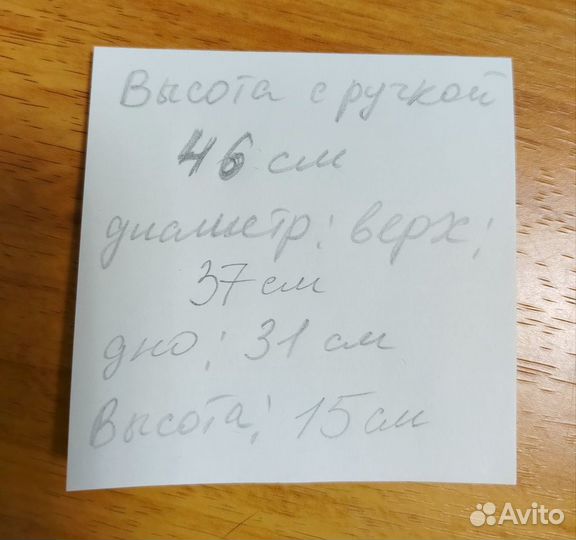 Высота с ручкой
46 см
диаметр: верх:
37 см
дно: 31 см
Высота: 15 см
Avito